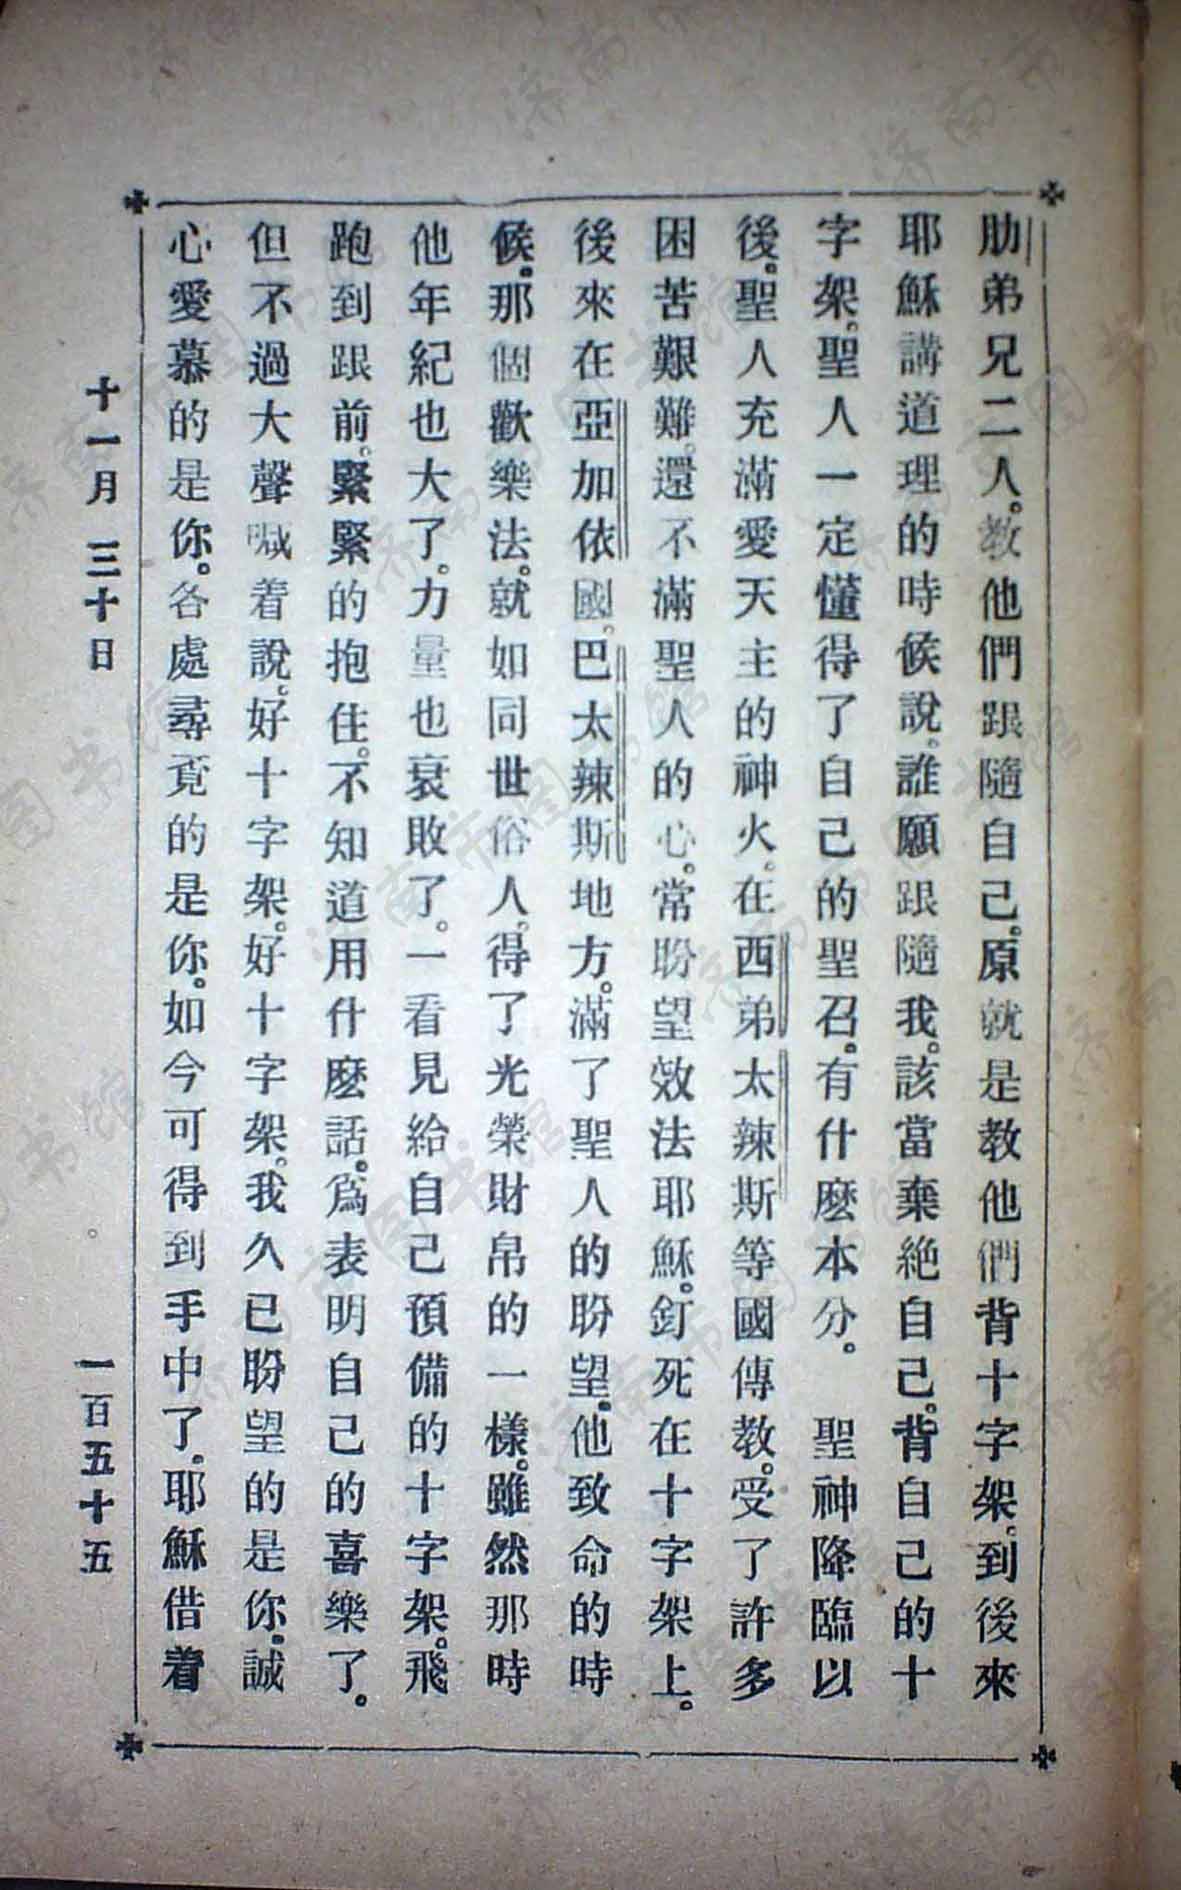 肋弟兄二人。教他們跟隨自己。原就是教他們背十字架。到後來
耶穌講道理的時候說。誰願跟隨我。該當棄絕自己。背自己的十
字架。聖人一定懂得了自己的聖召。有什麽本分。　聖神降臨以
後。聖人充滿愛天主的神火。在西弟太辣斯等國傳教。受了許多
困苦艱難。還不滿聖人的心。常盼望效法耶穌。釘死在十字架上。
後來在亞加依國。巴太辣斯地方。滿了聖人的盼望。他致命的時
候。那個歡樂法。就如同世俗人。得了光榮財帛的一樣。雖然那時
他年紀也大了。力量也衰敗了。一看見給自己預備的十字架。飛
跑到跟前。緊緊的抱住。不知道用什麽話。爲表明自己的喜樂了。
但不過大聲喊着說。好十字架。好十字架。我久已盼望的是你。誠
心愛慕的是你。各處尋覓的是你。如今可得到手中了。耶穌借着
十一月三十日　一百五十五
济南市图书馆